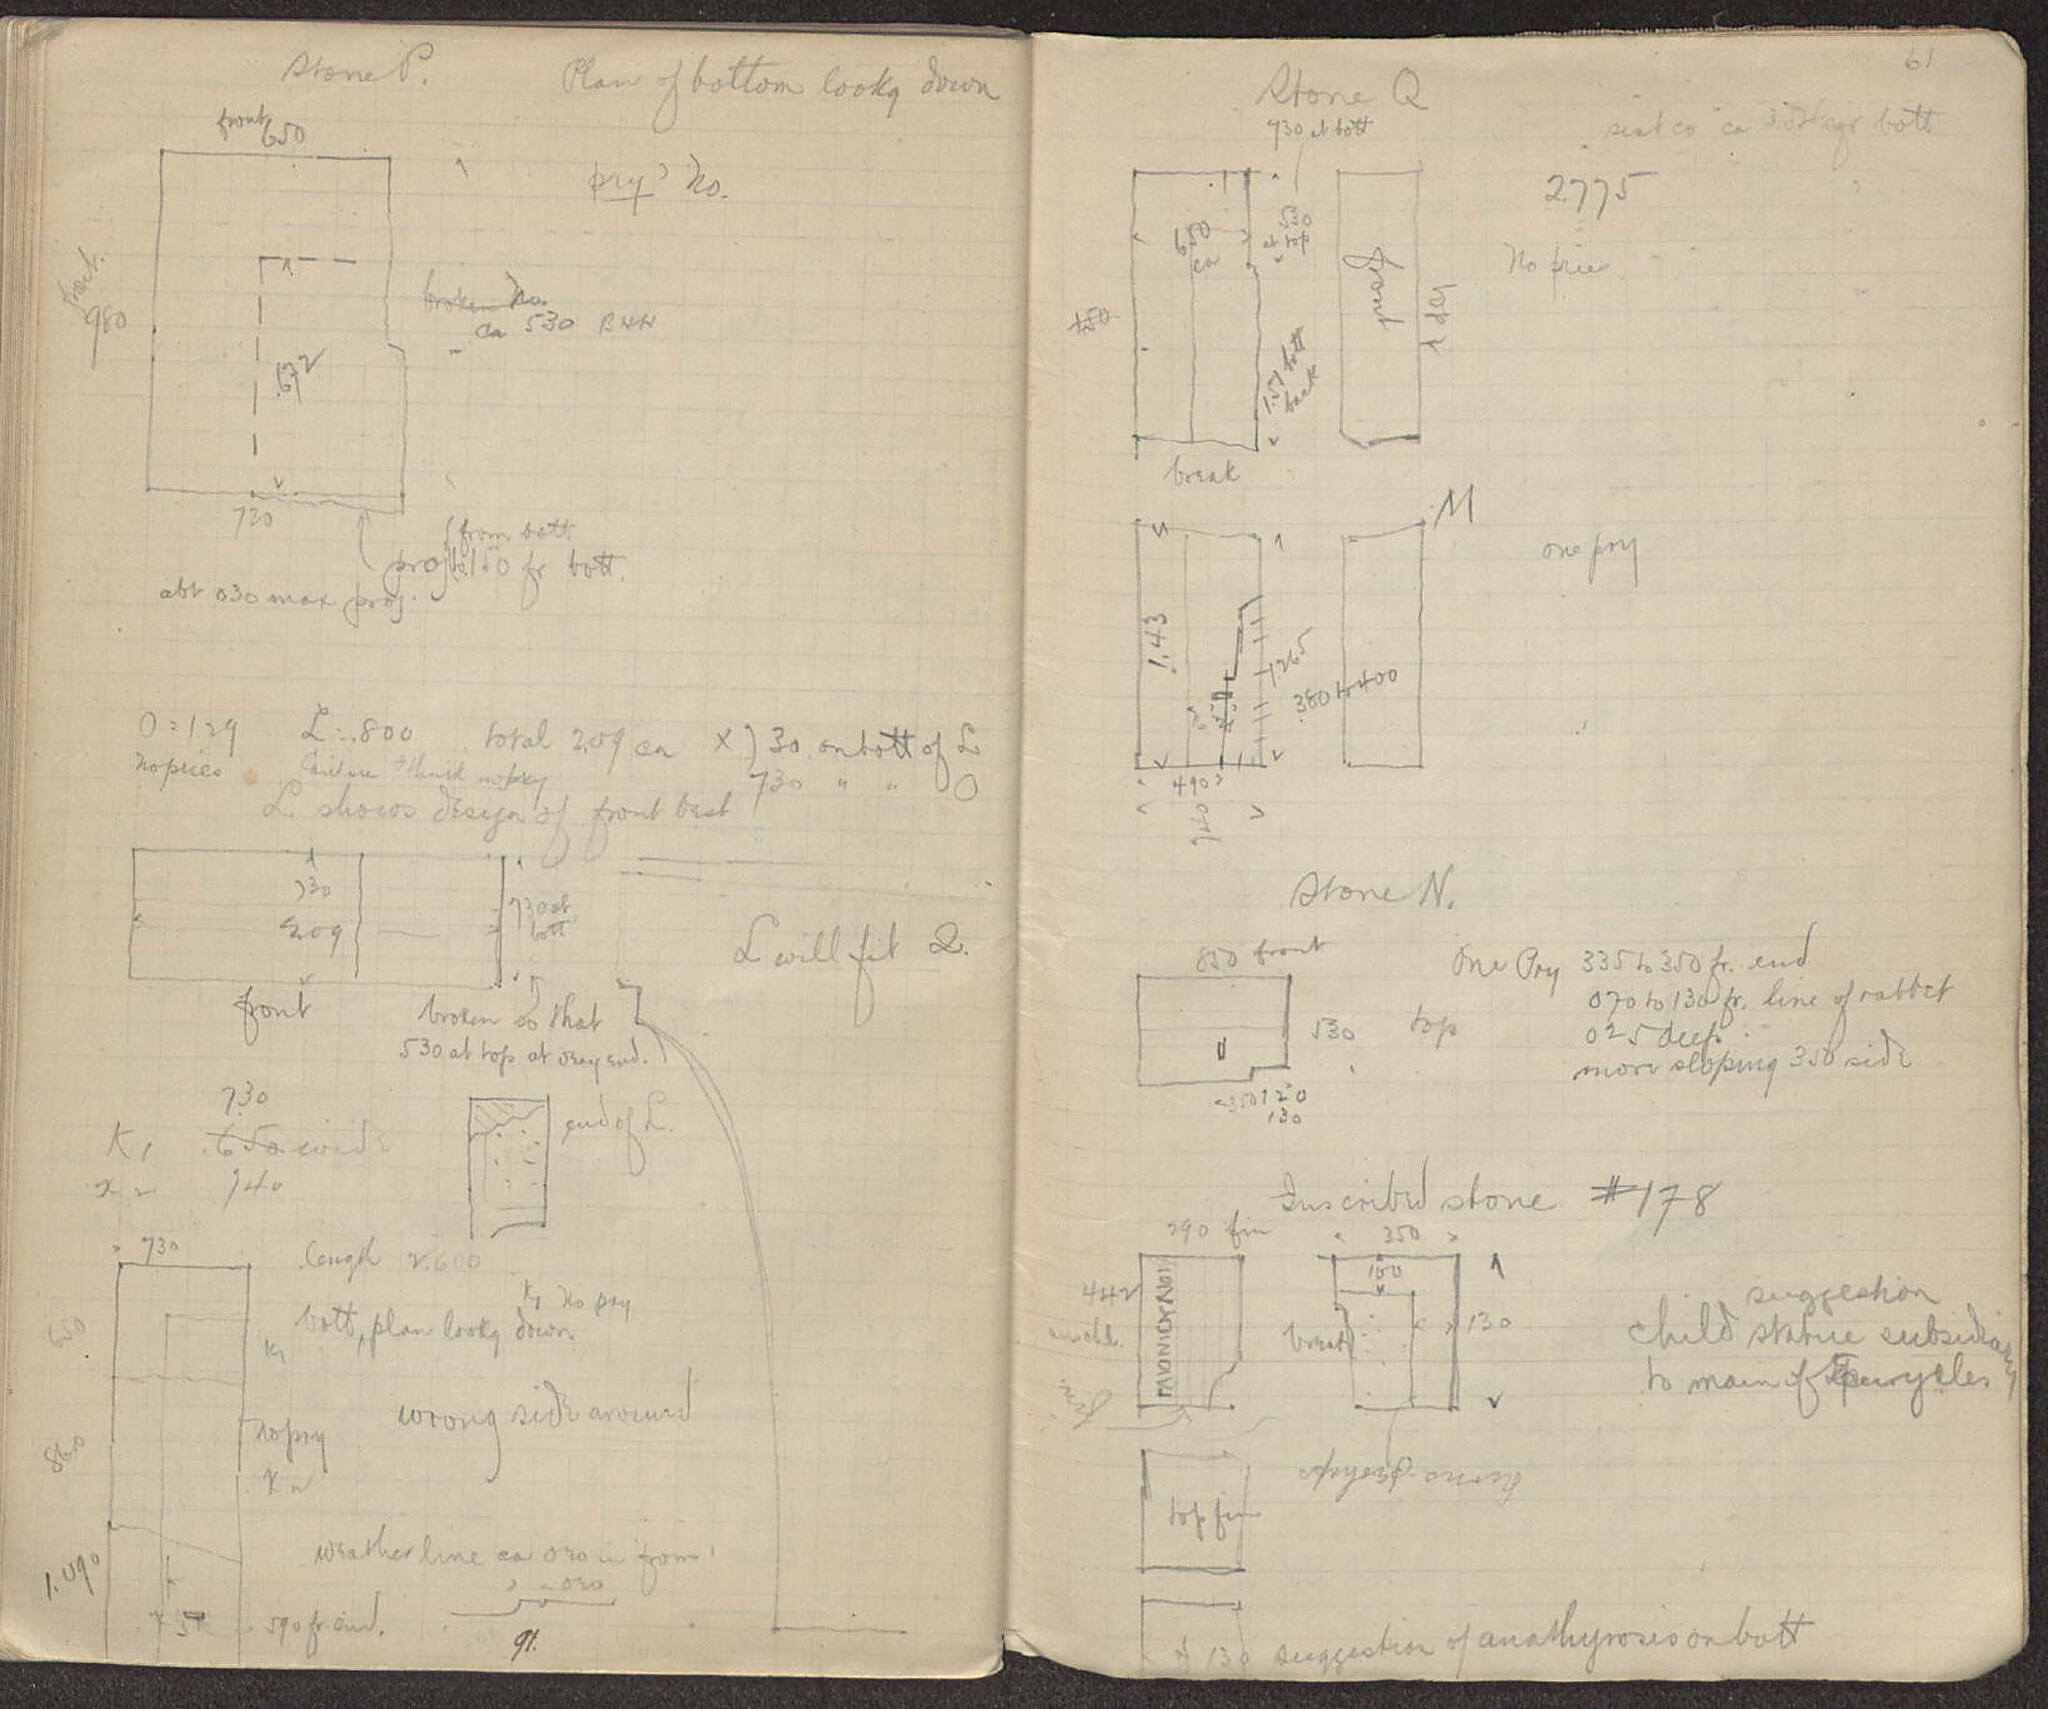 Stone P. Plan of bottom lookg down
front 650
pry? No.
980
broken No.
ca 530 BHH
.672
720
from bott
proj
fr bott.
abt 030 max proj.
O = 1.29 L = .800 total 2.09 ca X 730 on bott of L
no pries
no pry
730 " " O
L. shows design of front best
730
2.09
730 at
bott
L will fit Q.
front
broken so that
530 at top at very end.
730
K1 .650 wide
K2 740
end of L.
730
length 2.600
K1 no pry
650
bott, plan lookg down.
K1
wrong side around
no pry
K2
860
weather line ca 020 in from
020
1.090
590 fr. end.
91.
61
Stone Q
730 at bott
bott
2.775
530
at top
650
ca
top
No pries
1.51 bott
back
break
M
one pry
1.43
1.265
380 to 400
490
740
Stone N.
850 front
One Pry 335 to 350 fr. end
070 to 130 fr. line of rabbet
530 top
025 deep
more sloping 350 side
350 120
130
Inscribed stone #178
290 fin
350
100
442
break
130
suggestion
child statue subsidiary
to main of Epurycles
top fin
130 suggestion of anathyrosis on bott